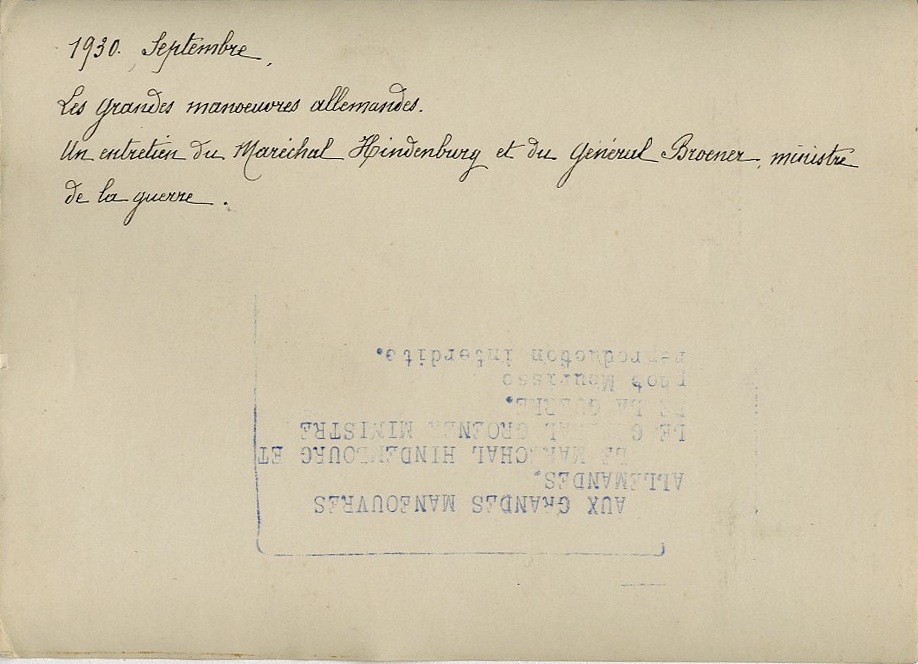 1930. Septembre.
Les grandes manoeuvres allemandes.
Un entretien du Maréchal Hindenburg et du Général Broener, ministre
de la guerre.
AUX GRANDES MANEOUVRES
ALLEMANDES.
LE MARECHAL HINDENBOURG ET
LE GENERAL GROENER MINISTRE
DE LA GUERRE.
phot Meurisse
reproduction interdite.